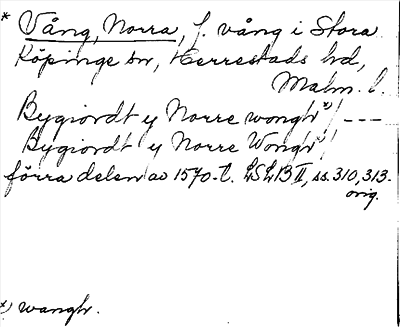 * Vång, Norra, f. vång i Stora
Köpinge sn, Herrestads hd,
Malm. l.
Bygiordt y Norre wongh *) / ---
Bygiordt y Norre Wongh *) /
förra delen av 1570-t. LSLB II, ss. 310, 313.
orig.
*) wangh.